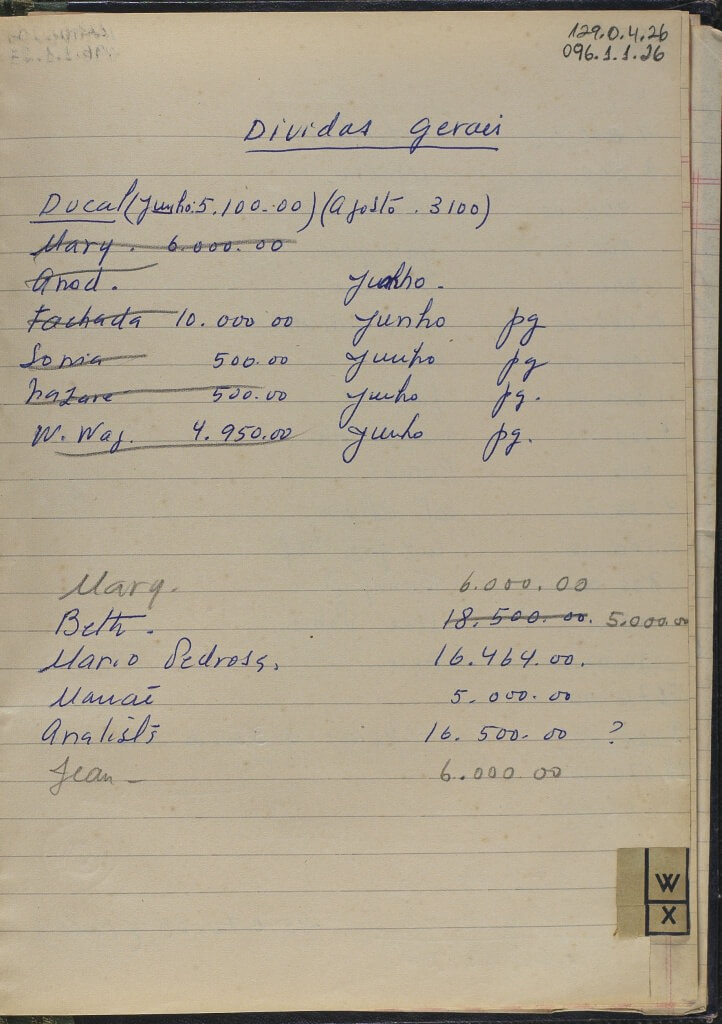 129.0.4.26
096.1.1.26
Dividas Gerais
Ducal (Junho. 5.100.00) (Agosto. 3100)
Mary. 6.000.00
Junho.
Fachada 10.000 00 Junho pg
Sonia 500.00 Junho pg
Nazaré 500.00 Junho pg.
W. Wag. 4.950.00 Junho pg.
Mary. 6.000.00
Beth. 18.500.00. 5.000.00
Mario Pedrosa. 16.464.00.
5.000.00
Analista 16.500.00 ?
Jean - 6.000 00
W
X